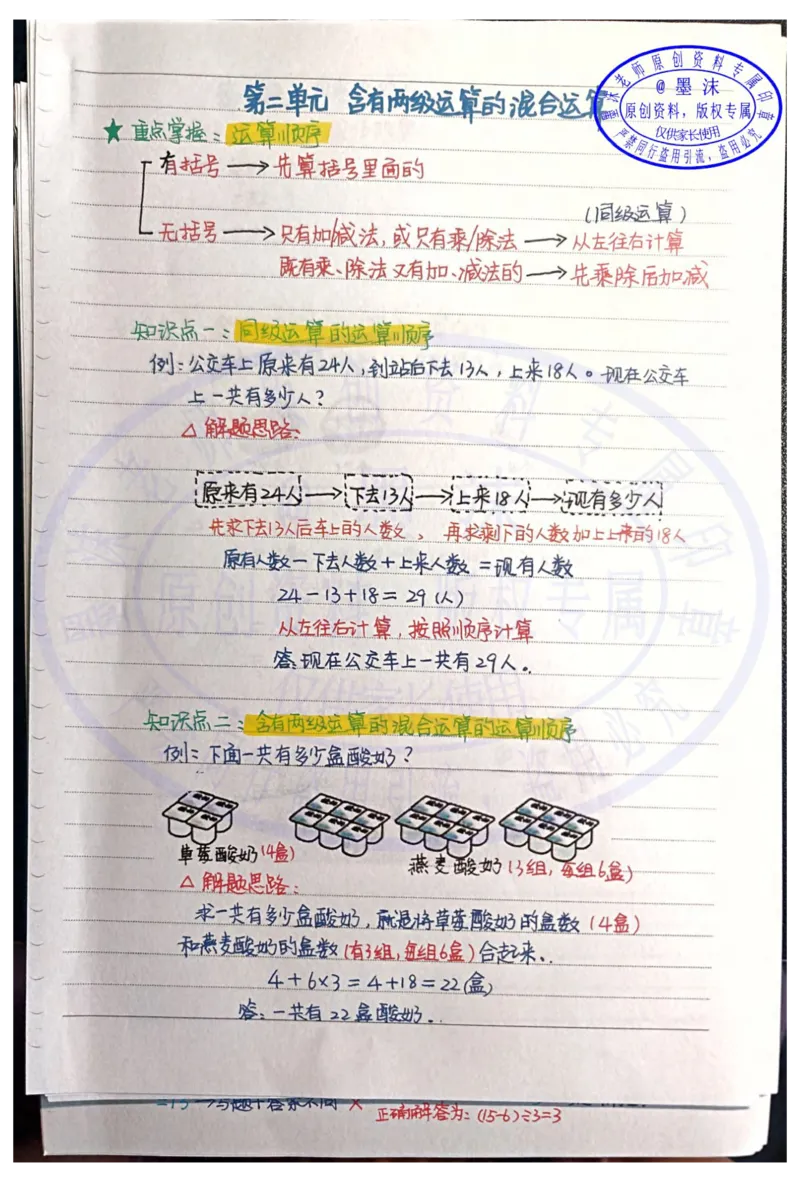 第二单元 含有两级运算的混合运算
墨沫老师原创资料专属印章
@墨沫
原创资料，版权专属
仅供家长使用
严禁同行盗用引流，盗用必究
★ 重点掌握：运算顺序
有括号 → 先算括号里面的
(同级运算)
无括号 → 只有加/减法,或只有乘/除法 → 从左往右计算
既有乘、除法又有加、减法的 → 先乘除后加减
知识点一：同级运算的运算顺序
例：公交车上原来有24人,到站后下去13人,上来18人。现在公交车
上一共有多少人？
△ 解题思路：
原来有24人 → 下去13人 → 上来18人 → 现有多少人
先求下去13人后车上的人数， 再求剩下的人数加上上来的18人
原有人数－下去人数＋上来人数＝现有人数
24－13＋18＝29（人）
从左往右计算，按照顺序计算
答:现在公交车上一共有29人。
知识点二：含有两级运算的混合运算的运算顺序
例：下面一共有多少盒酸奶？
草莓酸奶(4盒)
燕麦酸奶(3组，每组6盒)
△ 解题思路：
求一共有多少盒酸奶，就是将草莓酸奶的盒数（4盒）
和燕麦酸奶的盒数(有3组，每组6盒)合起来。
4＋6×3＝4＋18＝22(盒)
答：一共有22盒酸奶。
正确解答为：(15-6)÷3=3